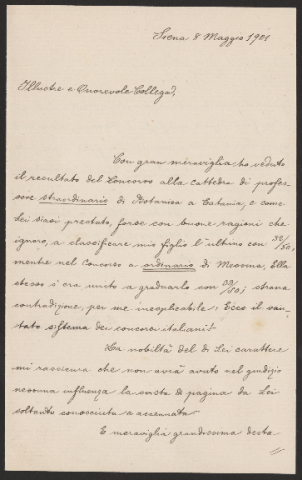 Siena 8 Maggio 1901
Illustre e Onorevole Collega,
Con gran meraviglia, ho veduto
il resultato del Concorso alla Cattedra di profes-
sore straordinario di Botanica a Catania, e come
Lei siasi prestato, forse con buone ragioni che
ignoro, a classificare mio figlio l'ultimo con 32/50,
mentre nel Concorso a ordinario di Messina, Ella
stesso si era unito a graduarlo con 39/50; strana
contradizione, per me inesplicabile! Ecco il van-
tato sistema dei concorsi italiani!
La nobiltà del di Lei carattere
mi rassicura che non avrà avuto nel giudizio
nessuna influenza la vasta di pagina da Lei
soltanto conosciuta a assennata
E meraviglia grandissima desta